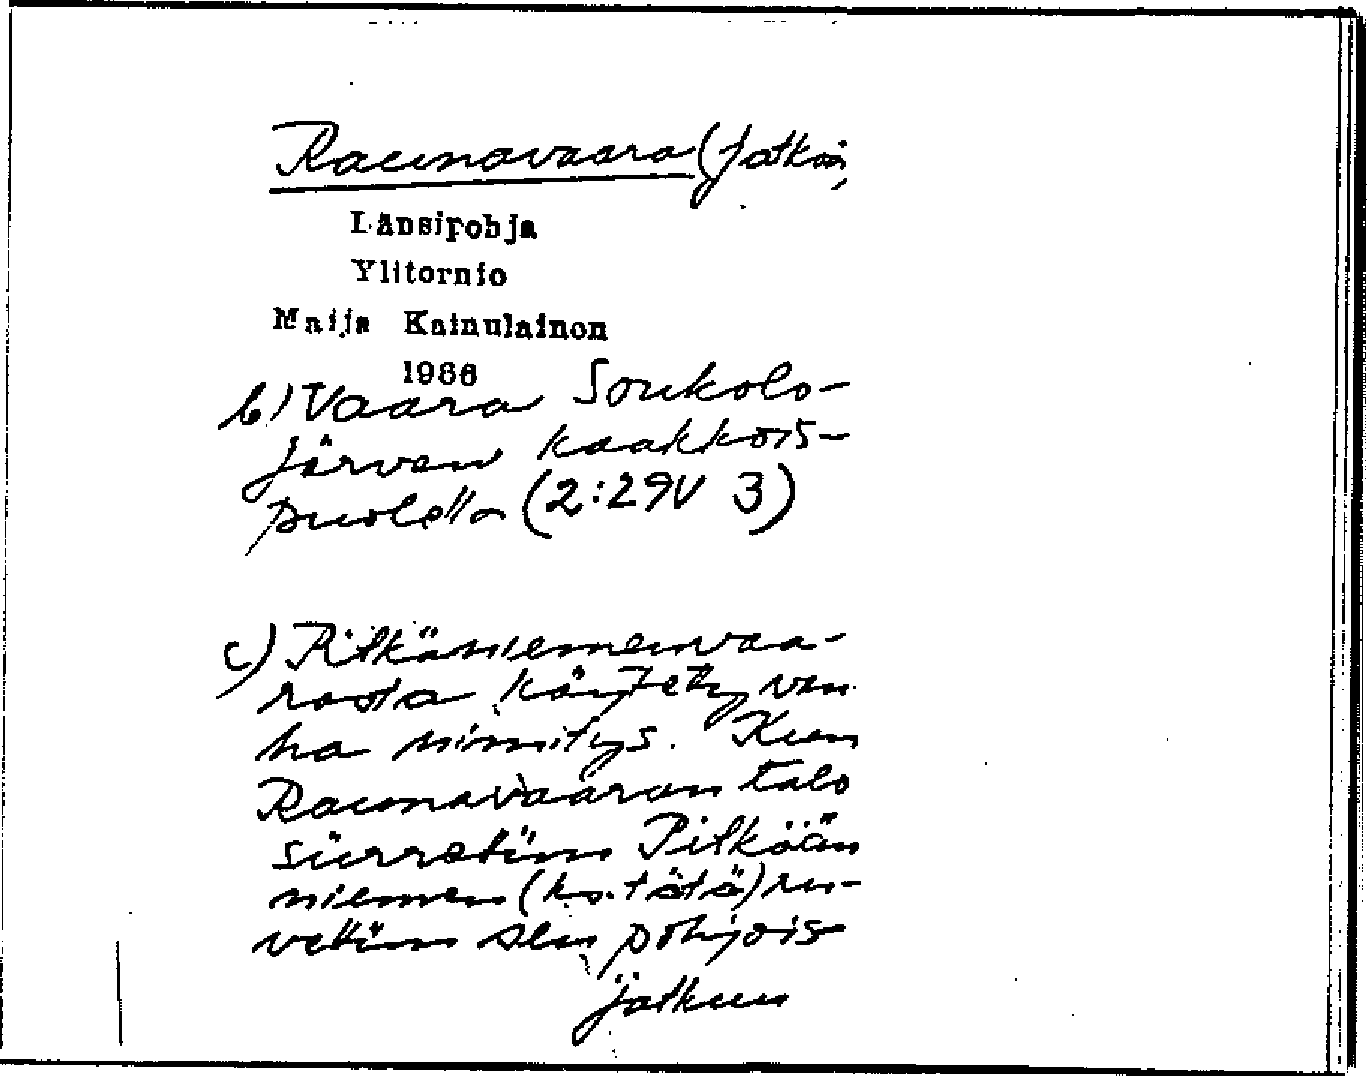 Raunavaara (jatkoa)
Länsipohja
Ylitornio
Maija Kainulainen
1966
b) Vaara Soukolo-
järven kaakkois-
puolella (2:29V 3)
c) Pitkäniemenvaa-
rasta käytetty van
ha nimitys. Kun
Raunavaaran talo
siirrettiin Pitkään
niemen (ks. tätä) ru-
vettiin sen pohjois
jatkuu